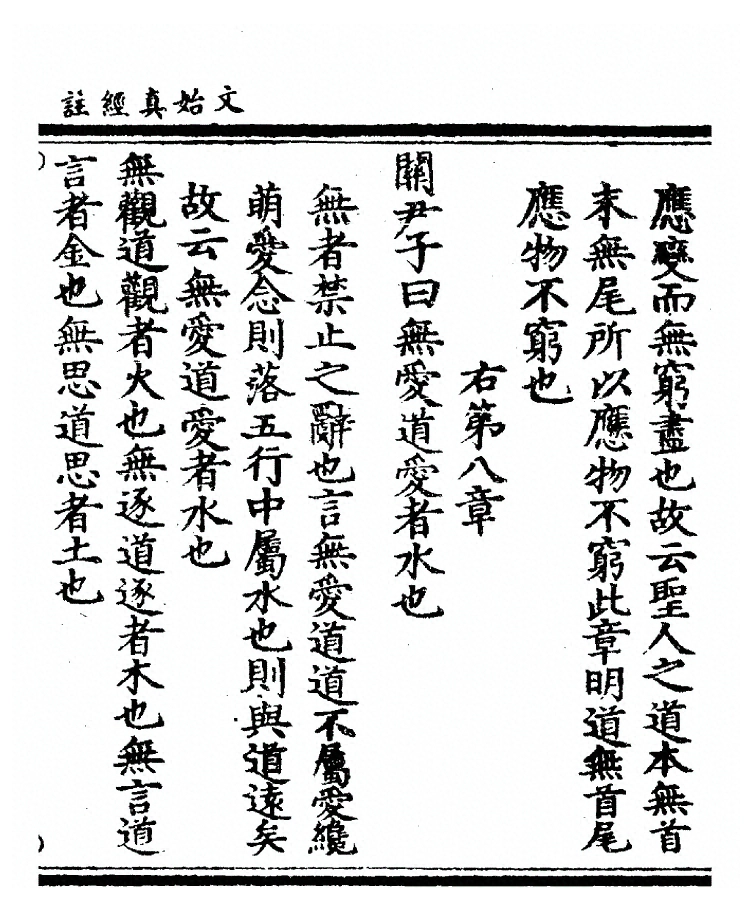 文始真經註
應變而無窮盡也故云聖人之道本無首
末無尾所以應物不窮此章明道無首尾
應物不窮也
右第八章
關尹子曰無愛道愛者水也
無者禁止之辭也言無愛道道不屬愛纔
萌愛念則落五行中屬水也則與道遠矣
故云無愛道愛者水也
無觀道觀者火也無逐道逐者木也無言道
言者金也無思道思者土也